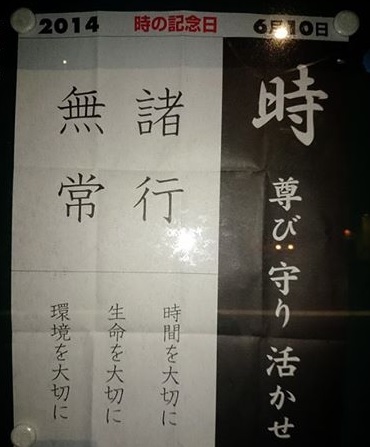 2014 時の記念日 6月10日
時 尊び 守り 活かせ
諸行
無常
時間を大切に
生命を大切に
環境を大切に